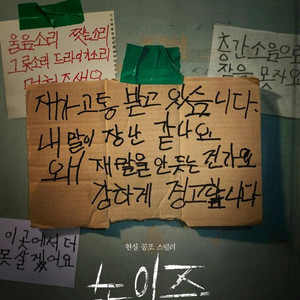 울음소리
층간소음으로
잠을 못자요
재가고통 받고 있습니다.
내 말이 장난 같나요
왜 재말을 안듣는건가요
강하게 경고합니다
이곳에서 더
못살겠어요
현실 공포 스릴러
노이즈